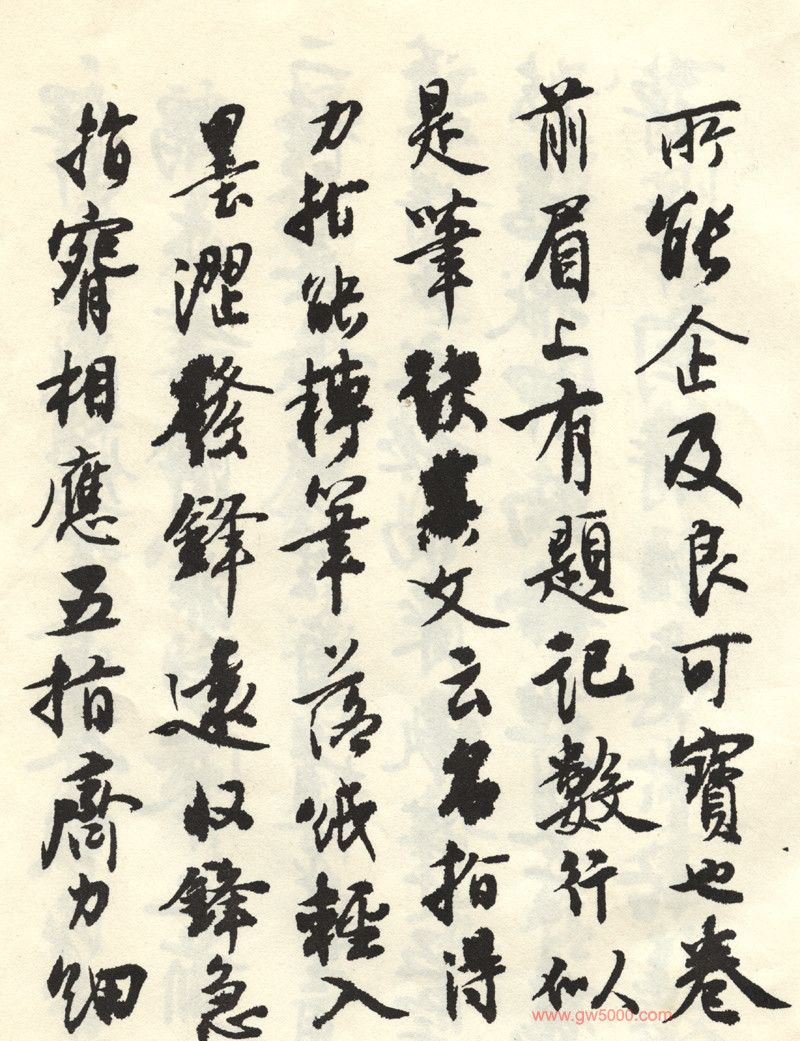 所能企及良可寶也卷
前眉上有題記數行似
是筆訣其文云名指得
力指能轉筆落紙輕入
墨澀發鋒遠收鋒急
指實相應五指齊力細
www.gw5000.com